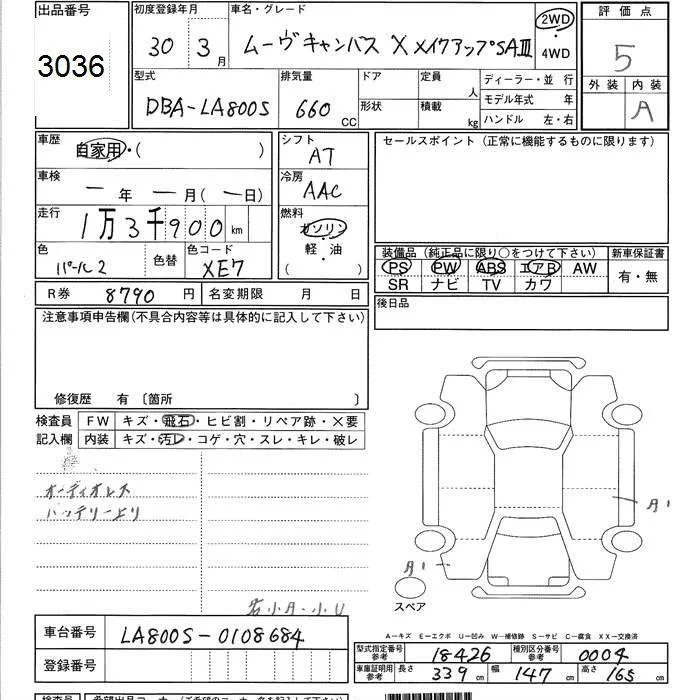 出品番号
3036
初度登録年月
30 3月
車名・グレード
ムーヴキャンバス X メイクアップSAⅢ
2WD
・
4WD
評価点
5
外装 内装
A
型式
DBA-LA800S
排気量
660 CC
ドア
形状
定員 人
積載 kg
ディーラー・並行
モデル年式 年
ハンドル 左・右
車歴
自家用・( )
シフト
AT
車検
ー年 ー月(ー日)
冷房
AAC
走行
1万3千900km
燃料
ガソリン
・
軽・油
( )
色
パール2
色替
色コード
XE7
R券 8790円
名変期限 月 日
セールスポイント(正常に機能するものに限ります)
装備品(純正品に限り○をつけて下さい)
PS PW ABS エアB AW
SR ナビ TV カワ
新車保証書
有・無
後日品
注意事項申告欄(不具合内容等は具体的に記入して下さい)
修復歴 有〔箇所 〕
検査員
記入欄
FW キズ・飛石・ヒビ割・リペア跡・×要
内装 キズ・汚レ・コゲ・穴・スレ・キレ・破レ
オーディオレス
バッテリー上り
小A・小U
A1
A1
スペア
車台番号
LA800S-0108684
登録番号
A…キズ E…エクボ U…凹み W…補修跡 S…サビ C…腐食 XX…交換済
型式指定番号
参考
18426
種別区分番号
参考
0004
車庫証明用
参考
長さ 339cm 幅 147cm 高さ 165cm
検査員
希望出品コーナー(ご希望のコーナー名を記入して下さい)